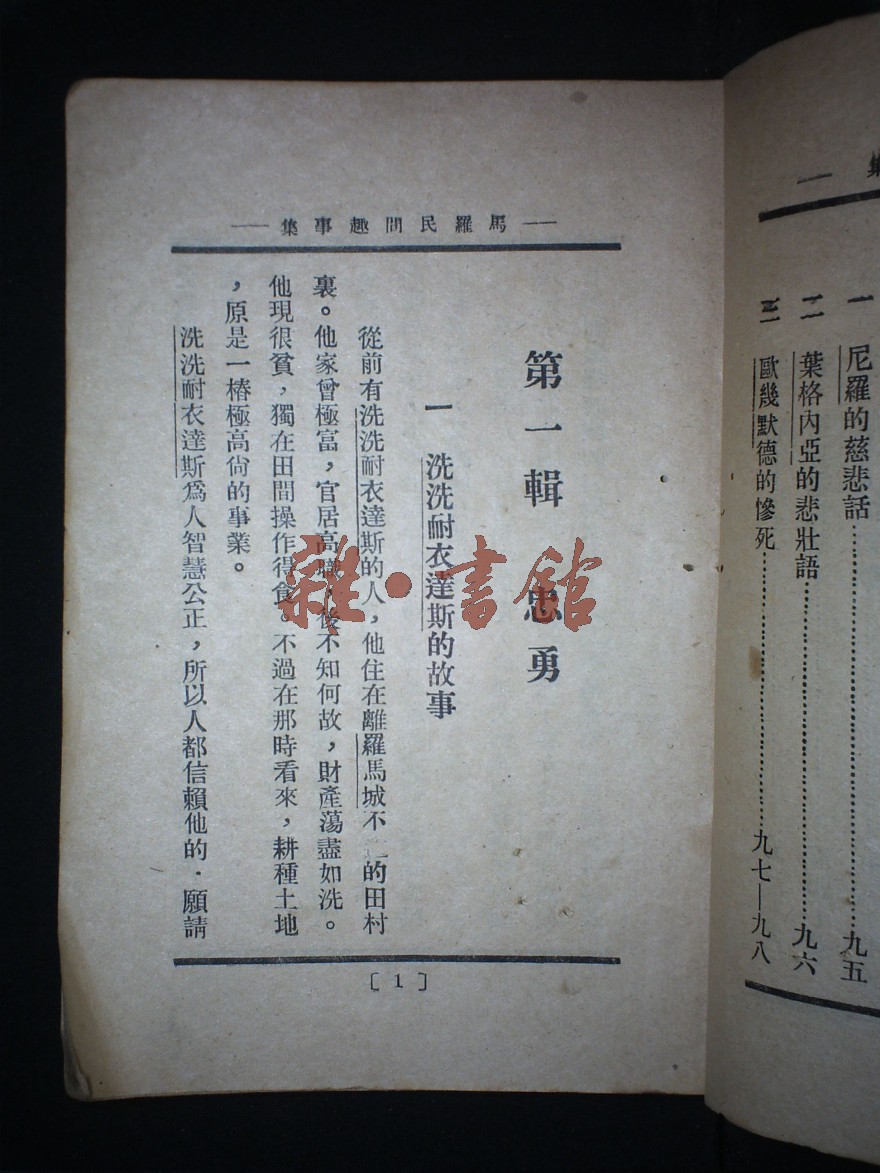 集—
一 尼羅的慈悲話……九五
二 葉格內亞的悲壯語……九六
三 歐幾默德的慘死……九七—九八
—馬羅民間趣事集—
第一輯 忠勇
一 洗洗耐衣達斯的故事
從前有洗洗耐衣達斯的人，他住在離羅馬城不的田村
裏。他家曾極富，官居高職，後不知何故，財產蕩盡如洗。
他現很貧，獨在田間操作得食。不過在那時看來，耕種土地
，原是一樁極高尙的事業。
洗洗耐衣達斯爲人智慧公正，所以人都信賴他的．願請
〔1〕
雜·書館